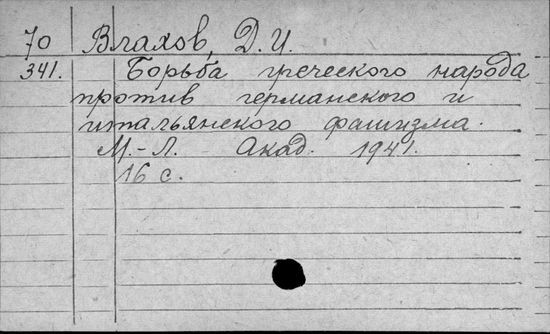 70 Влахов, Д. И.
341. Борьба греческого народа
против германского и
итальянского фашизма.
М.-Л. Акад. 1941.
16 с.